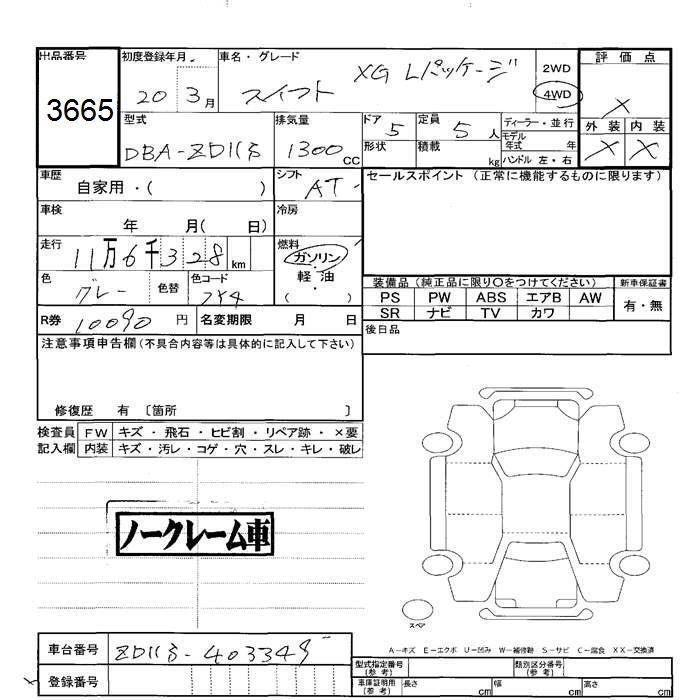 出品番号 初度登録年月 車名・グレード 評価点
3665 20 3月 スイフト XG Lパッケージ 2WD 4WD X
型式 排気量 ドア 定員 ディーラー・並行 外装 内装
DBA-ZD11S 1300cc 5 5人 モデル年式 年 X X
形状 積載 kg ハンドル 左・右
車歴 自家用・( ) シフト AT セールスポイント(正常に機能するものに限ります)
車検 年 月( 日) 冷房
走行 11万6千328km 燃料 ガソリン・軽・油・( )
色 グレー 色替 色コード
装備品(純正品に限り○をつけてください) 新車保証書
PS PW ABS エアB AW 有・無
SR ナビ TV カワ
R券 10090円 名変期限 月 日 後日品
注意事項申告欄(不具合内容等は具体的に記入して下さい)
修復歴 有 〔箇所 〕
検査員 FW キズ・飛石・ヒビ割・リペア跡・×要
記入欄 内装 キズ・汚レ・コゲ・穴・スレ・キレ・破レ
ノークレーム車
スペア
A-キズ E-エクボ U-凹み W-補修跡 S-サビ C-腐食 XX-交換済
車台番号 ZD11S-403349
登録番号
型式指定番号(参考) 類別区分番号(参考)
車庫証明用(参考) 長さ cm 幅 cm 高さ cm